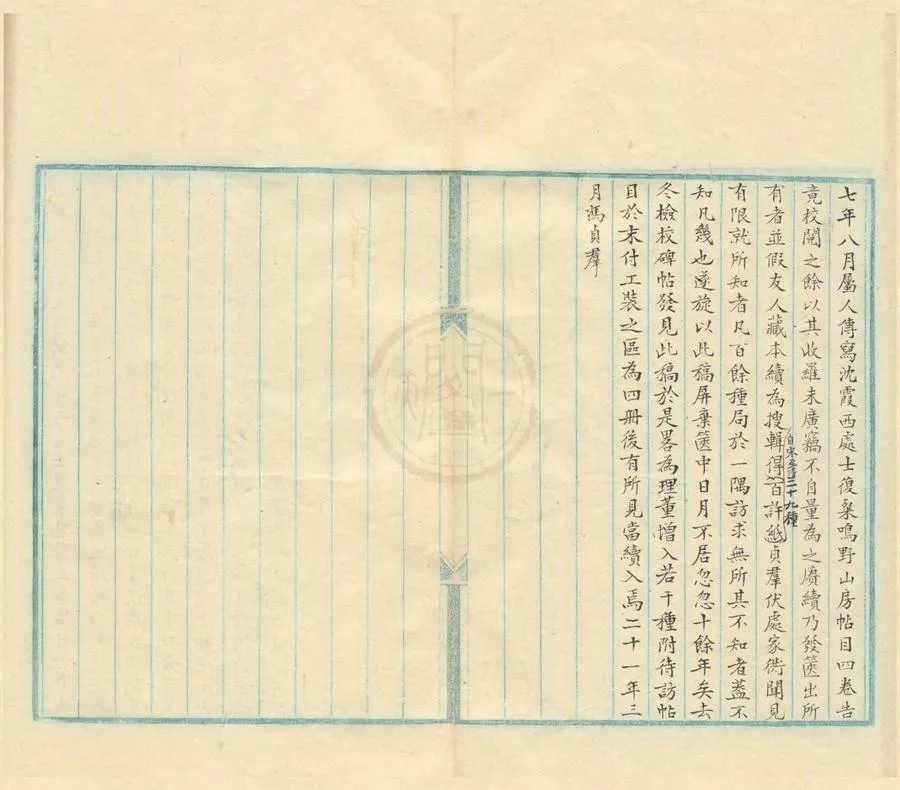 七年八月屬人傳寫沈霞西處士復粲鳴野山房帖目四卷告
竟校閱之餘以其收羅未廣竊不自量為之賡續乃發篋出所
有者並假友人藏本續為搜輯得百許紙貞羣伏處家衖聞見
自宋至清二十九種
有限就所知者凡百餘種局於一隅訪求無所其不知者蓋不
知凡幾也遂旋以此稿屏棄篋中日月不居忽忽十餘年矣去
冬檢校碑帖發見此稿於是畧為理董增入若干種附待訪帖
目於末付工裝之區為四冊後有所見當續入焉二十一年三
月馮貞羣